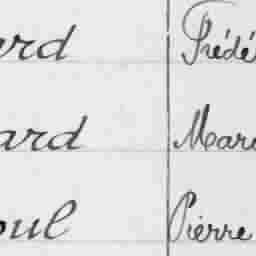 ard Frédé
ard Marc
oul Pierre